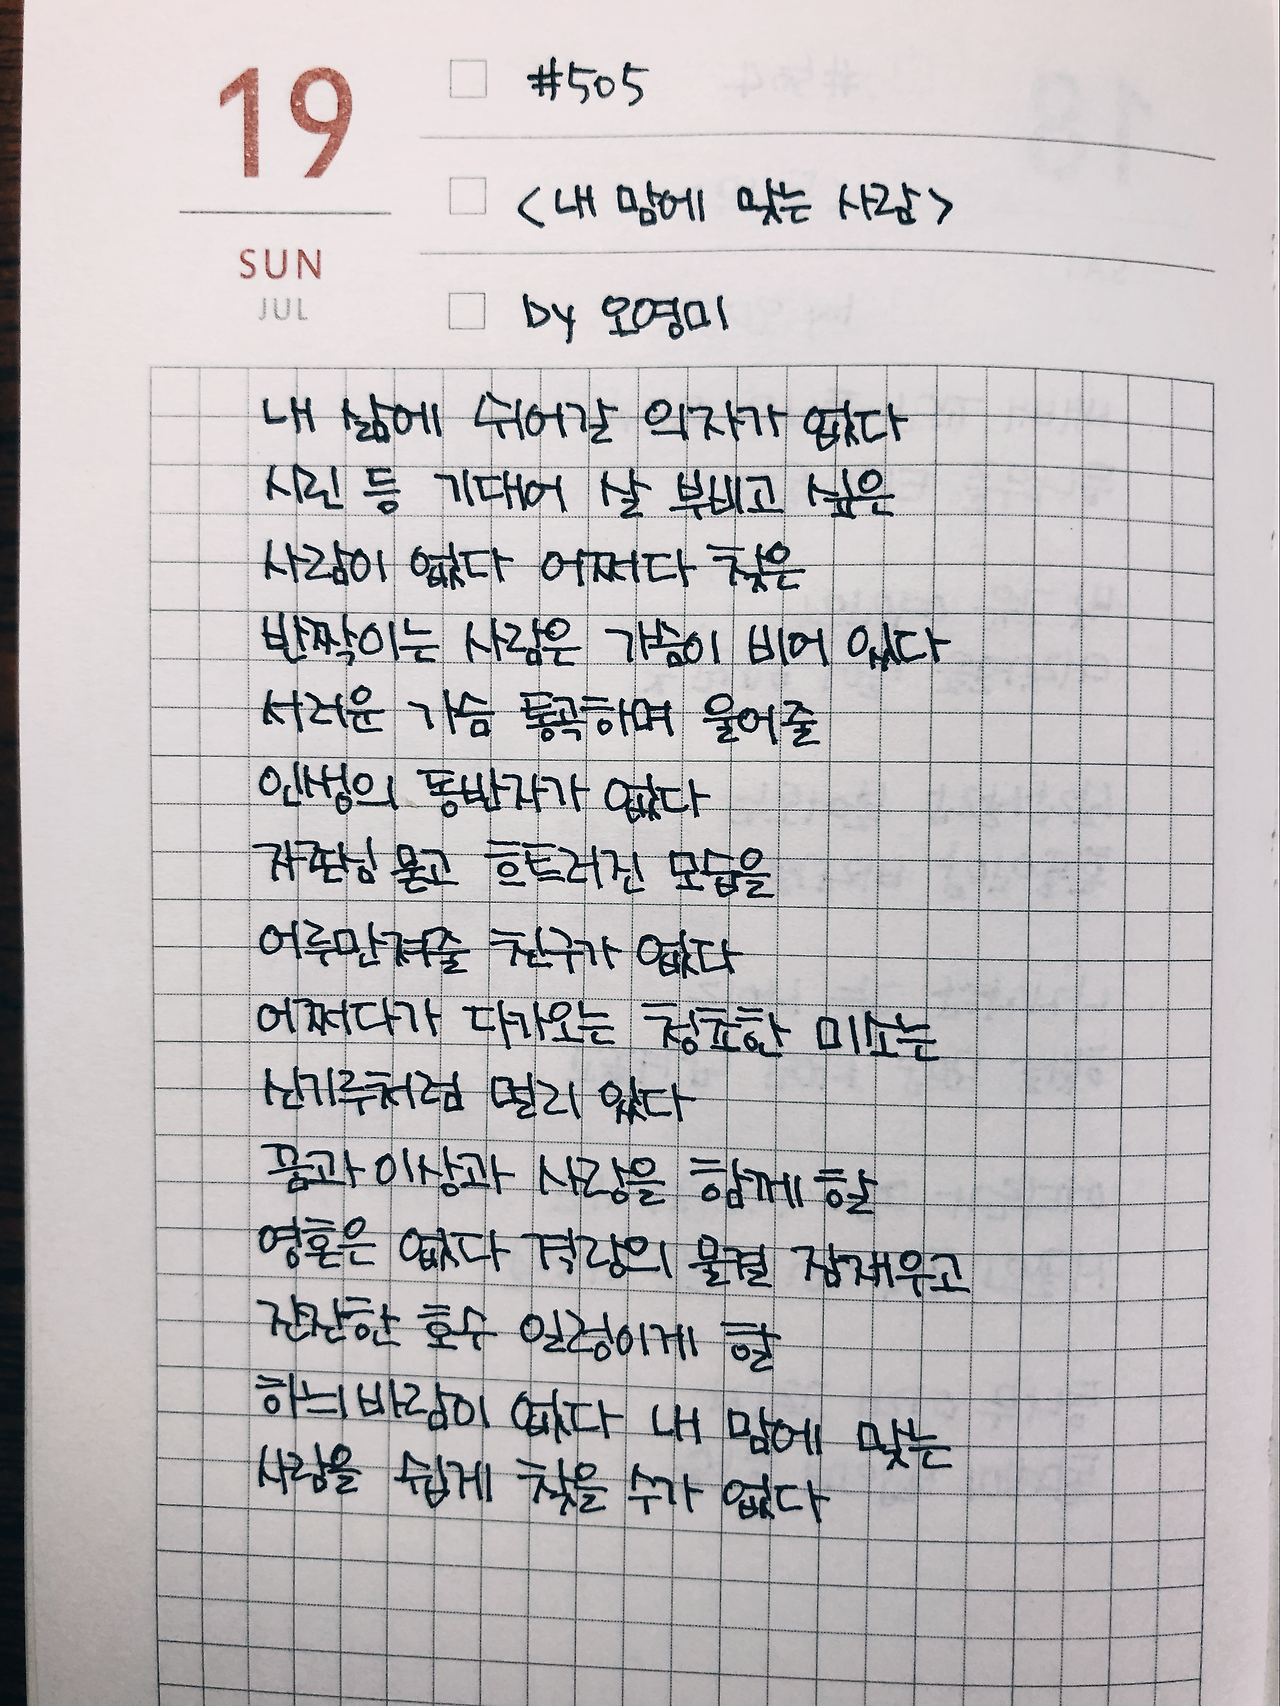 19
SUN
JUL
#505
<내 맘에 맞는 사람>
by 오영미
내 삶에 쉬어갈 의자가 없다
시린 등 기대어 살 부비고 싶은
사람이 없다 어쩌다 찾은
반짝이는 사람은 가슴이 비어 있다
서러운 가슴 통곡하며 울어줄
인생의 동반자가 없다
자존심 묻고 흐트러진 모습을
어루만져줄 친구가 없다
어쩌다가 다가오는 청초한 미소는
신기루처럼 멀리 있다
꿈과 이상과 사랑을 함께 할
영혼은 없다 격랑의 물결 잠재우고
잔잔한 호수 일렁이게 할
하늬바람이 없다 내 맘에 맞는
사람을 쉽게 찾을 수가 없다